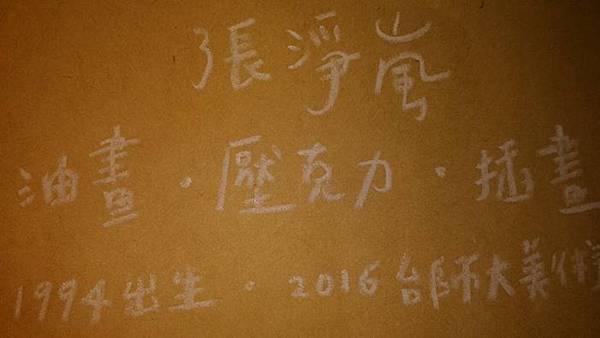 張淨嵐
油畫．壓克力．插畫
1994出生．2016台師大美術